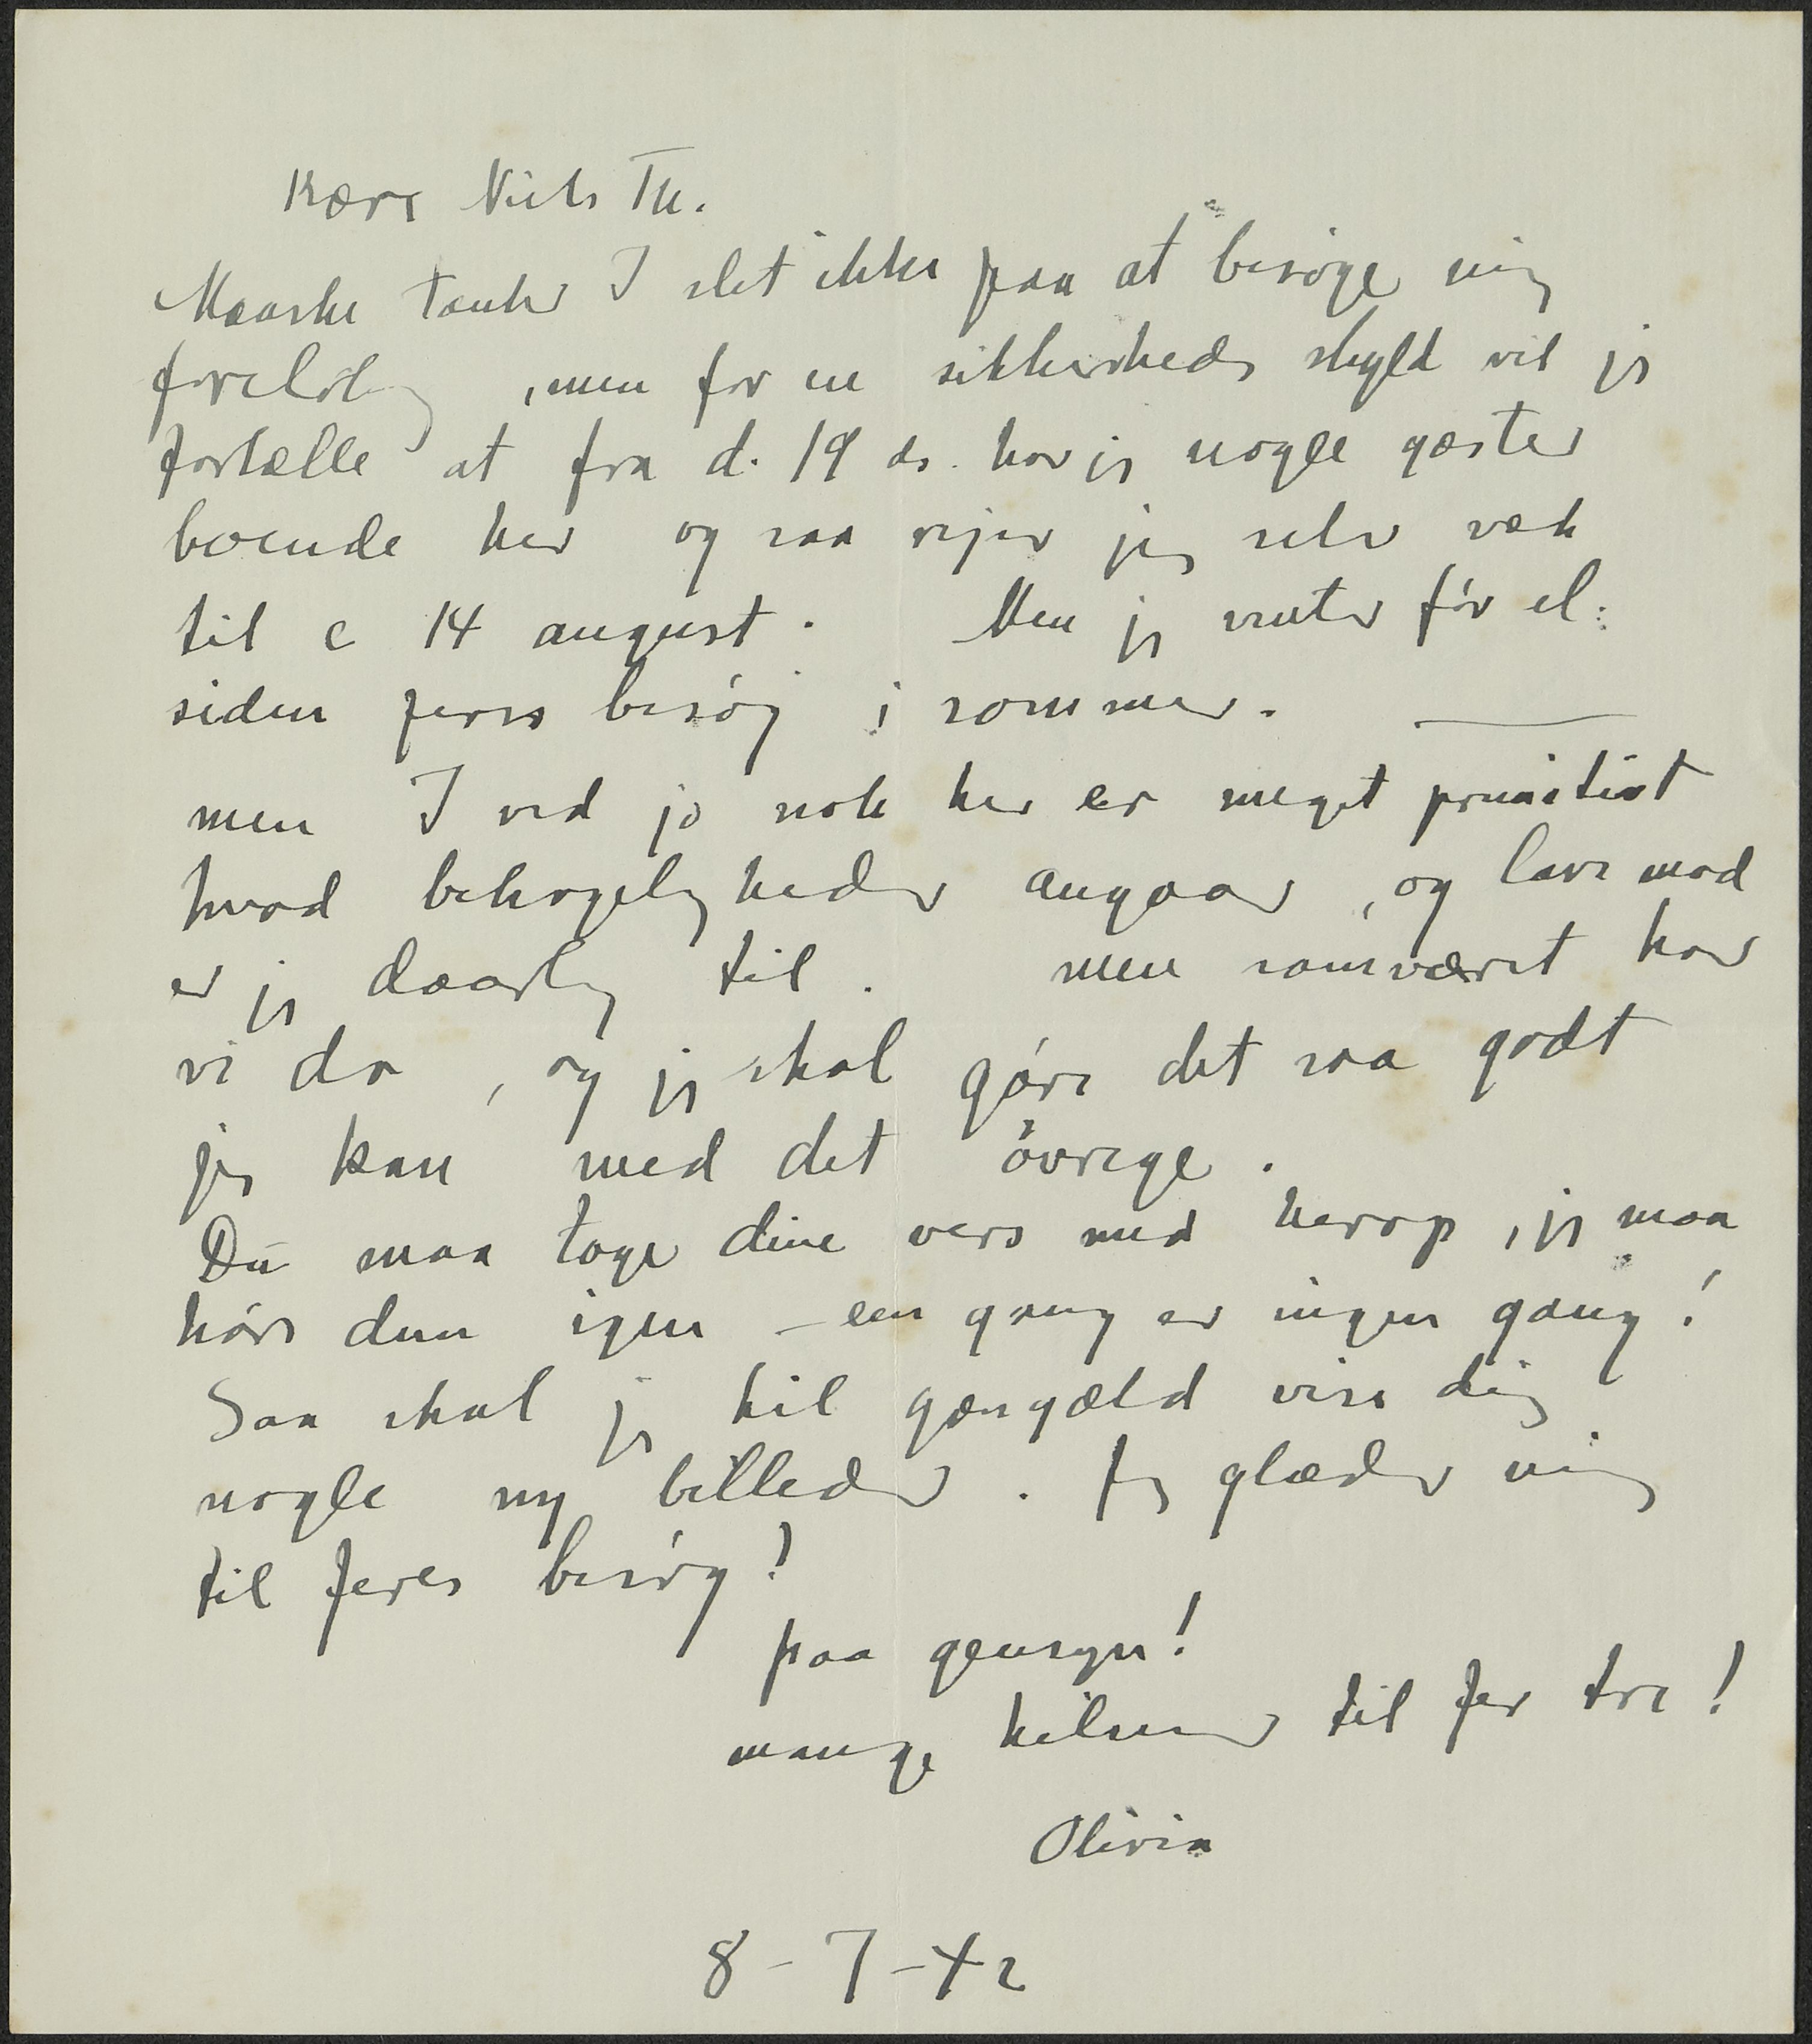 Kære Niels Th.
Maaske tænker I slet ikke paa at besøge mig
foreløbig, men for en sikkerheds skyld vil jeg
fortælle at fra d. 19 ds. har jeg nogle gæster
boende her og saa rejser jeg selv væk
til c 14 august. Men jeg venter før el.
siden jeres besøg i sommer. —
men I ved jo nok her er meget primitivt
hvad behageligheder angaar, og lave mad
er jeg daarlig til. men samværet har
vi da, og jeg skal gøre det saa godt
jeg kan med det øvrige.
Du maa tage dine vers med herop, jeg maa
høre dem igen – een gang er ingen gang!
Saa skal jeg til gengæld vise dig
nogle ny billeder. Jeg glæder mig
til Jeres besøg!
paa gensyn!
mange hilsner til Jer tre!
Olivia
8-7-42